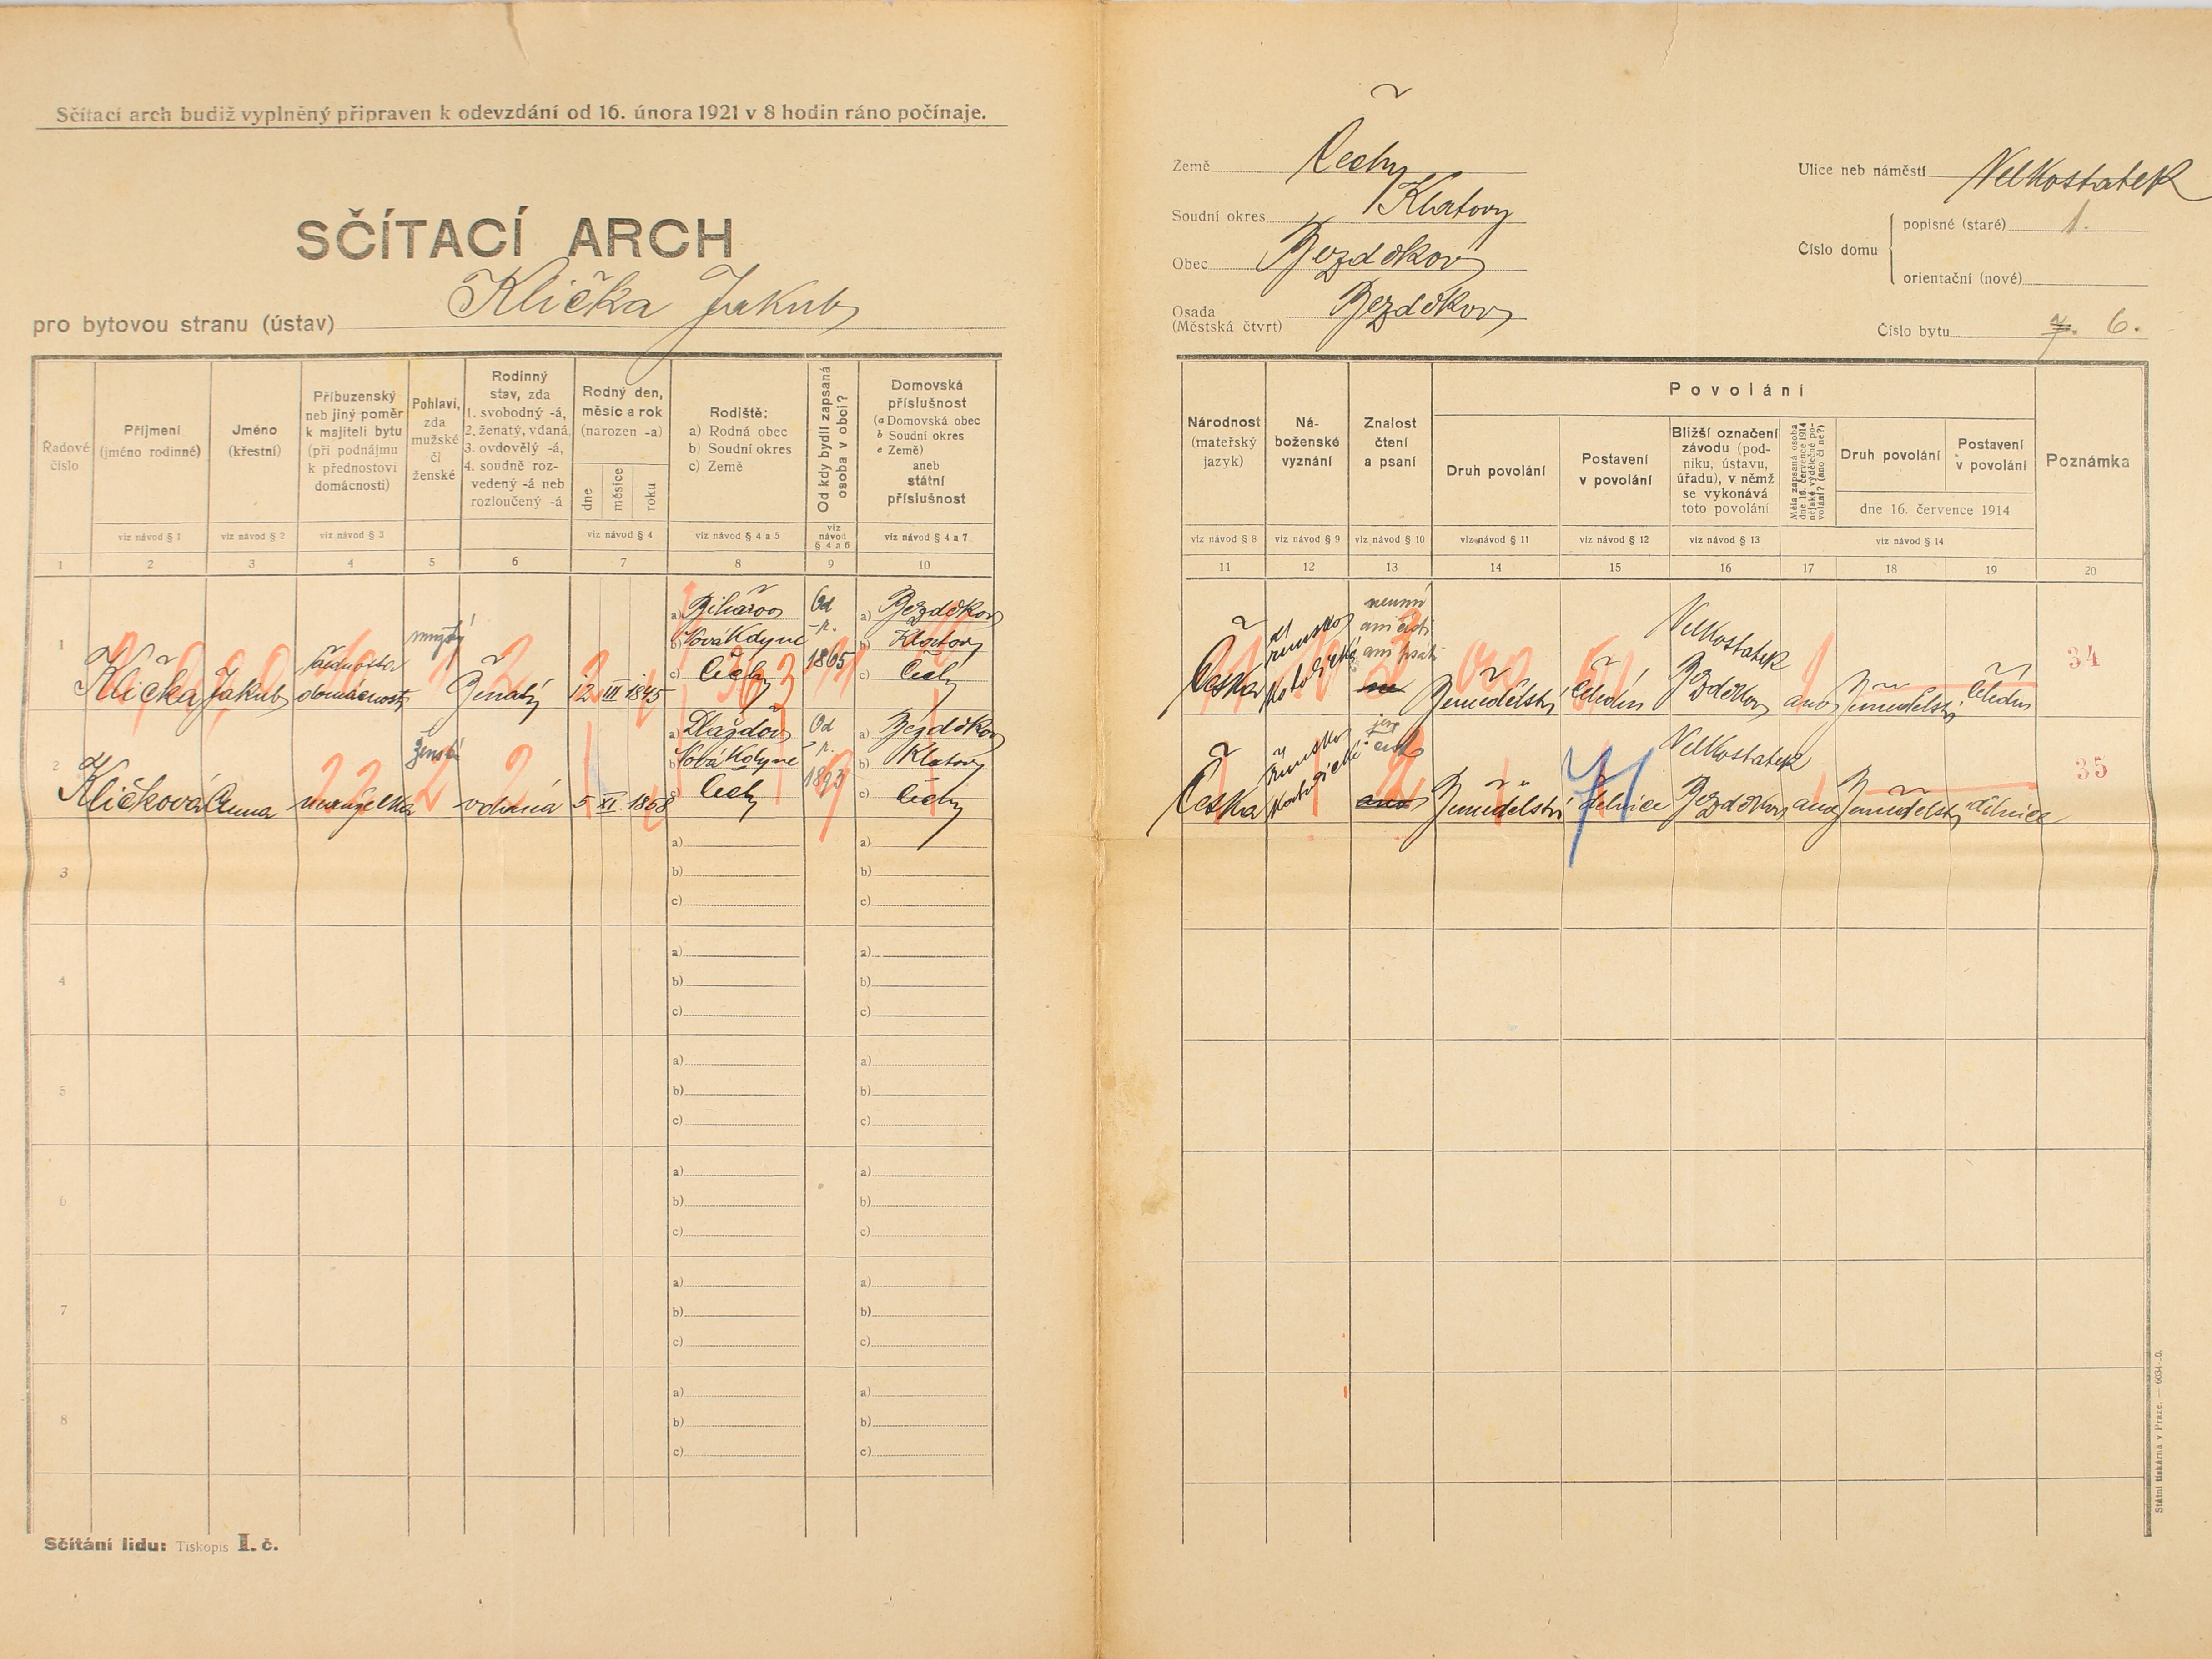 Sčítací arch budiž vyplněný připraven k odevzdání od 16. února 1921 v 8 hodin ráno počínaje.
SČÍTACÍ ARCH
pro bytovou stranu (ústav) Klička Jakub
Země Čechy
Soudní okres Klatovy
Obec Bezděkov
Osada Bezděkov
(Městská čtvrt)
Ulice neb náměstí Velkostatek
Číslo domu
popisné (staré) 1.
orientační (nové)
Číslo bytu 7. 6.
Řadové číslo
Příjmení
(jméno rodinné)
Jméno
(křestní)
Příbuzenský
neb jiný poměr
k majiteli bytu
(při podnájmu
k přednostovi
domácnosti)
Pohlaví,
zda
mužské
či
ženské
Rodinný
stav, zda
1. svobodný -á,
2. ženatý, vdaná,
3. ovdovělý -á,
4. soudně roz-
vedený -á neb
rozloučený -á
Rodný den,
měsíc a rok
(narozen -a)
dne
měsíce
roku
Rodiště:
a) Rodná obec
b) Soudní okres
c) Země
Od kdy bydlí zapsaná
osoba v obci?
Domovská
příslušnost
(a Domovská obec
b Soudní okres
c Země)
aneb
státní
příslušnost
viz návod § 1
viz návod § 2
viz návod § 3
viz návod § 4
viz návod § 4 a 5
viz
návod
§ 4 a 6
viz návod § 4 a 7
1 2 3 4 5 6 7 8 9 10
Národnost
(mateřský
jazyk)
Ná-
boženské
vyznání
Znalost
čtení
a psaní
Povolání
Druh povolání
Postavení
v povolání
Bližší označení
závodu (pod-
niku, ústavu,
úřadu), v němž
se vykonává
toto povolání
Měla zapsaná osoba
dne 16. července 1914
nějaké výdělečné po-
volání? (ano či ne?)
Druh povolání
Postavení
v povolání
dne 16. července 1914
Poznámka
viz návod § 8
viz návod § 9
viz návod § 10
viz návod § 11
viz návod § 12
viz návod § 13
viz návod § 14
11 12 13 14 15 16 17 18 19 20
1
Klička Jakub
přednosta
domácnosti
mužské
Ženatý
12 III 1845
a)
b) Nová Kdyně
c) Čechy
Od
r.
1865
a) Bezděkov
b) Klatovy
c) Čechy
Česká
římsko
katolické
neumí
ani čísti
ani psáti
Zemědělství
čeledín
Velkostatek
Bezděkov
ano
Zemědělství
čeledín
34
2
Kličková Anna
manželka
ženské
vdaná
5 XI. 1868
a) Dlažďov
b) Nová Kdyně
c) Čechy
Od
r.
1893
a) Bezděkov
b) Klatovy
c) Čechy
Česká
římsko
katolické
ano
Zemědělství
dělnice
71
Velkostatek
Bezděkov
ano
Zemědělství
dělnice
35
3
a) a)
b) b)
c) c)
4
a) a)
b) b)
c) c)
5
a) a)
b) b)
c) c)
6
a) a)
b) b)
c) c)
7
a) a)
b) b)
c) c)
8
a) a)
b) b)
c) c)
Sčítání lidu: Tiskopis I. č.
Státní tiskárna v Praze. — 6034-0.